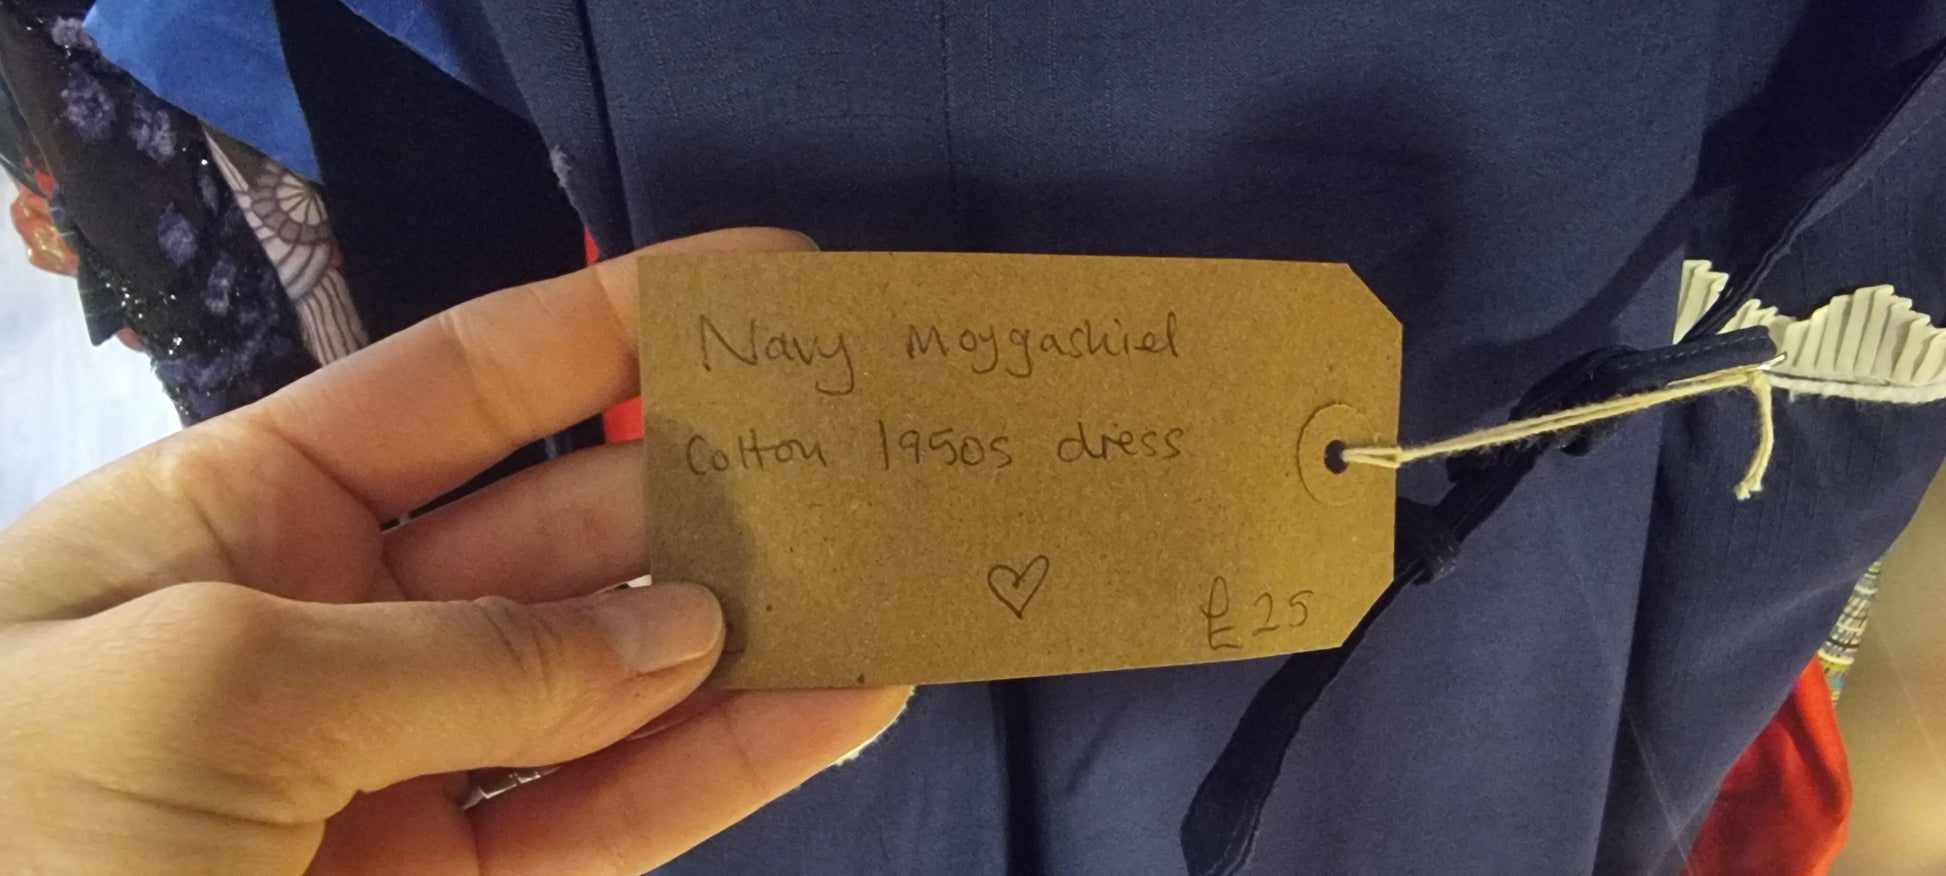 Navy Moygashiel
Cotton 1950s dress
£25